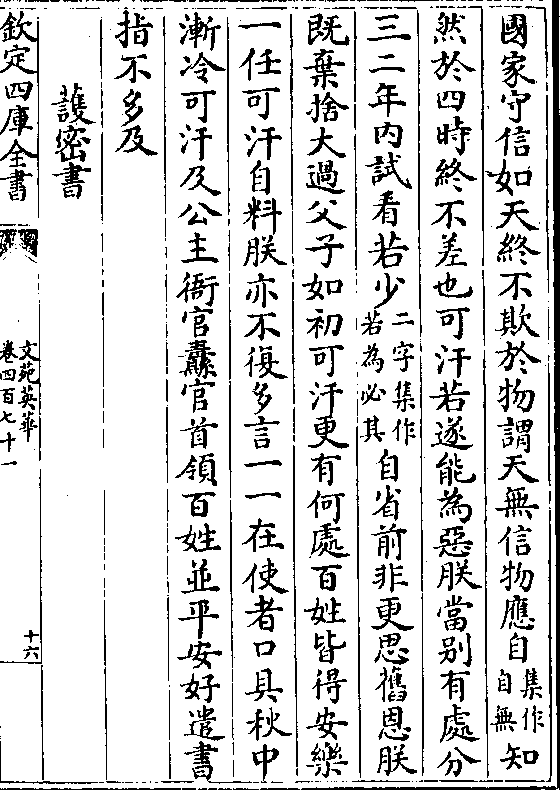 國家守信如天終不欺於物謂天無信物應自集作自無知
然於四時終不差也可汗若遂能為惡朕當别有處分
三二年内試看若少二字集作若為必其自省前非更思舊恩朕
既棄捨大過父子如初可汗更有何處百姓皆得安樂
一任可汗自料朕亦不復多言一一在使者口具秋中
漸冷可汗及公主衙官纛官首領百姓並平安好遣書
指不多及
護密書
欽定四庫全書
文苑英華
卷四百七十一
十六